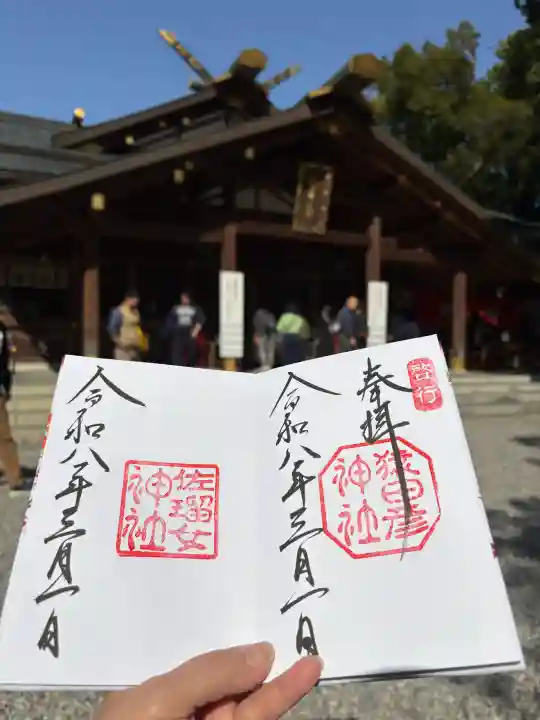 啓行
奉拝
猿田彦
神社
令和八年三月一日
佐瑠女
神社
令和八年三月一日